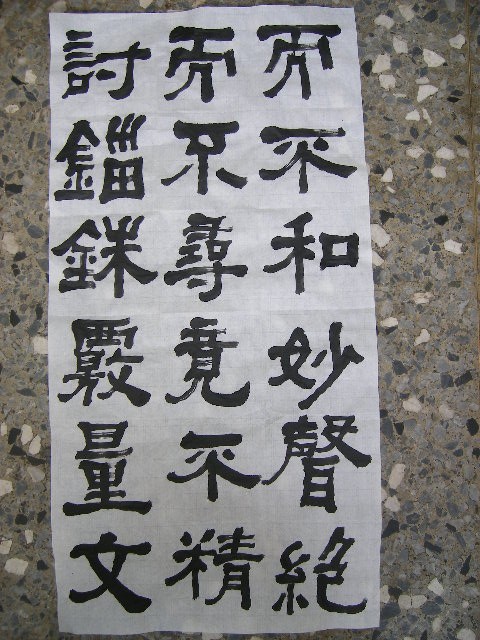 而不和妙聲絕
而不尋竟不精
討錙銖覈量文